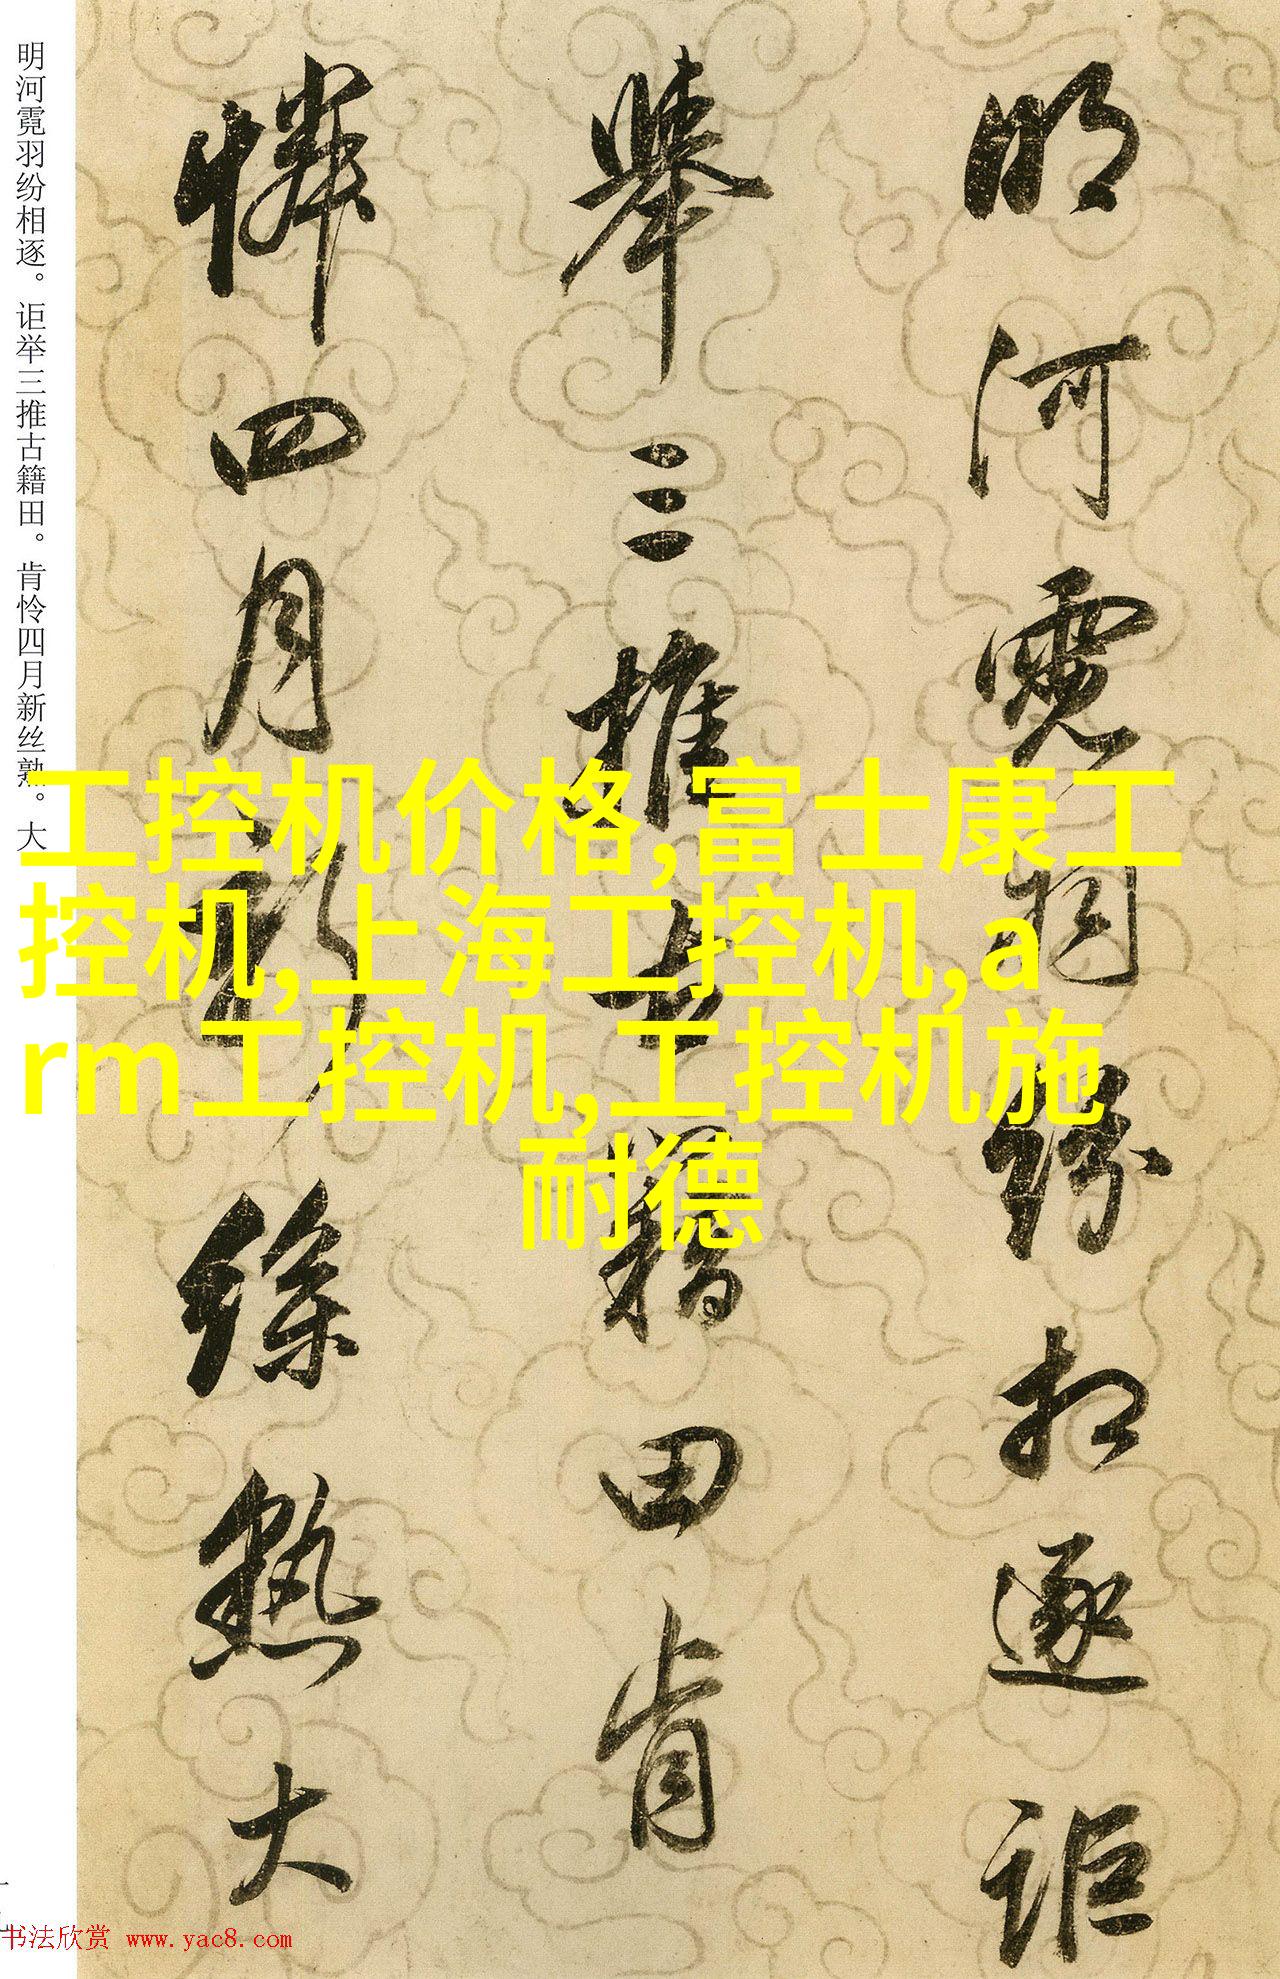 明河霓羽纷相逐。讵举三推古籍田。肯怜四月新丝熟。大
明河霓羽紛相逐詎
舉三推古籍田肯
憐四月新絲熟大
工控机价格,富士康工
控机,上海工控机,a
rm工控机,工控机施
耐德
书法欣赏 www.yac8.com